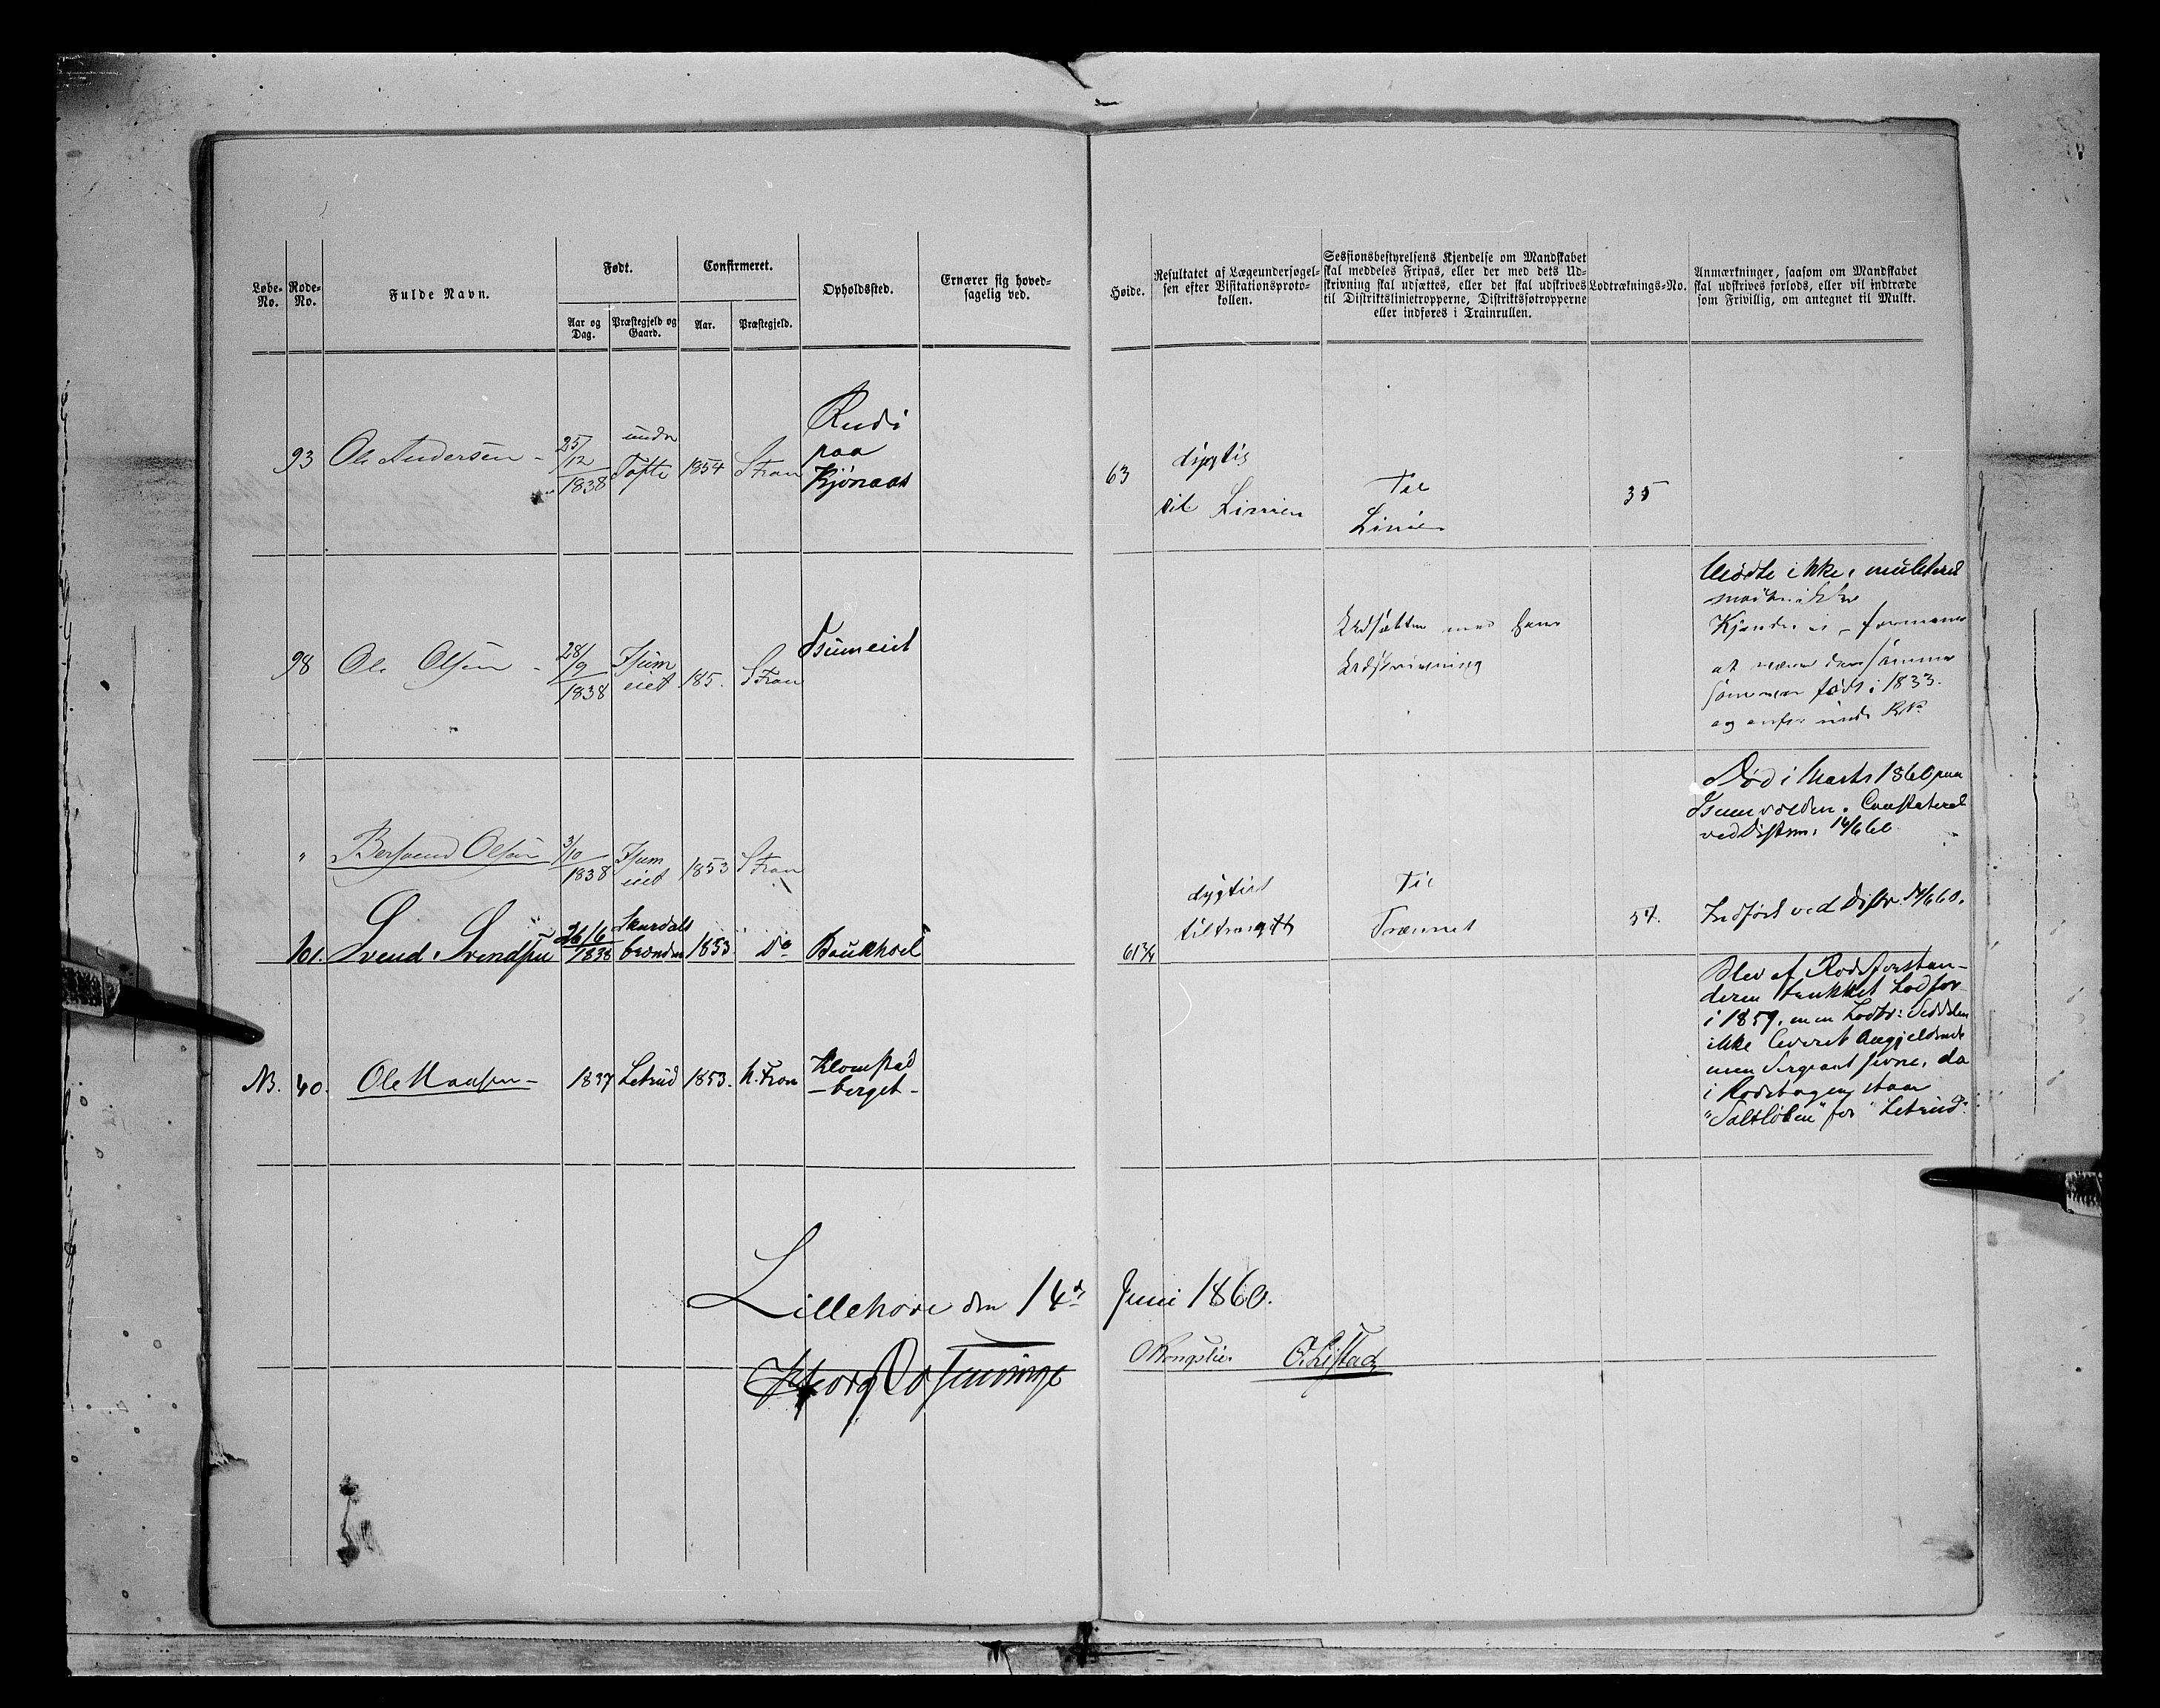 Løbe-No.
Rode-No.
Fulde Navn.
Født.
Aar og Dag.
Præstegjeld og Gaard.
Confirmeret.
Aar.
Præstegjeld.
Opholdssted.
Ernærer sig hoved-
sagelig ved.
Høide.
Resultatet af Lægeundersøgel-
sen efter Visitationsproto-
kollen.
Sessionsbestyrelsens Kjendelse om Mandskabet
skal meddeles Fripas, eller der med dets Ud-
skrivning skal udsættes, eller det skal udskrives
til Distriktslinietropperne, Distriktsfotropperne
eller indføres i Trainrullen.
Lodtræknings-No.
Anmærkninger, saasom om Mandskabet
skal udskrives forlods, eller vil indtræde
som Frivillig, om antegnet til Mulkt.
93 Ole Andersen - 25/12 1838 under Tofte 1854 S Fron Rudi paa Kjønaas
63 dygtig til Linien Til Linien 35
98 Ole Olsen - 28/9 1838 Isum eiet 185. S Fron Isumeiet
Udsættes med hans
Udskrivning
Mødte ikke, mulkteret
født i 1833.
" Bersvend Olsen 3/10 1838 Isum eiet 1853 S Fron
Død i Marts 1860 paa
Isumvolden. Constateret
ved 14/6 60
101. Svend Svendsen 26/6 1838 Skurdals 1853 Do Baukhoel
61 3/4 dygtig til Til Trænnet 54. Indført ved Distr. 14/6 60.
NB. 40. Ole Hansen - 1837 Letrud 1853. N. Fron Klomstad
- berget -
Blev af Rodeforstan-
deren trukket Lod for
i 1859, men Lodtr: Seddelen
ikke leveret Angjeldende
men Sergeant, da
i Rodebogen staar
"Saltløkken" for "Letrud".
Lillehove den 14de Juni 1860.
O. Listad